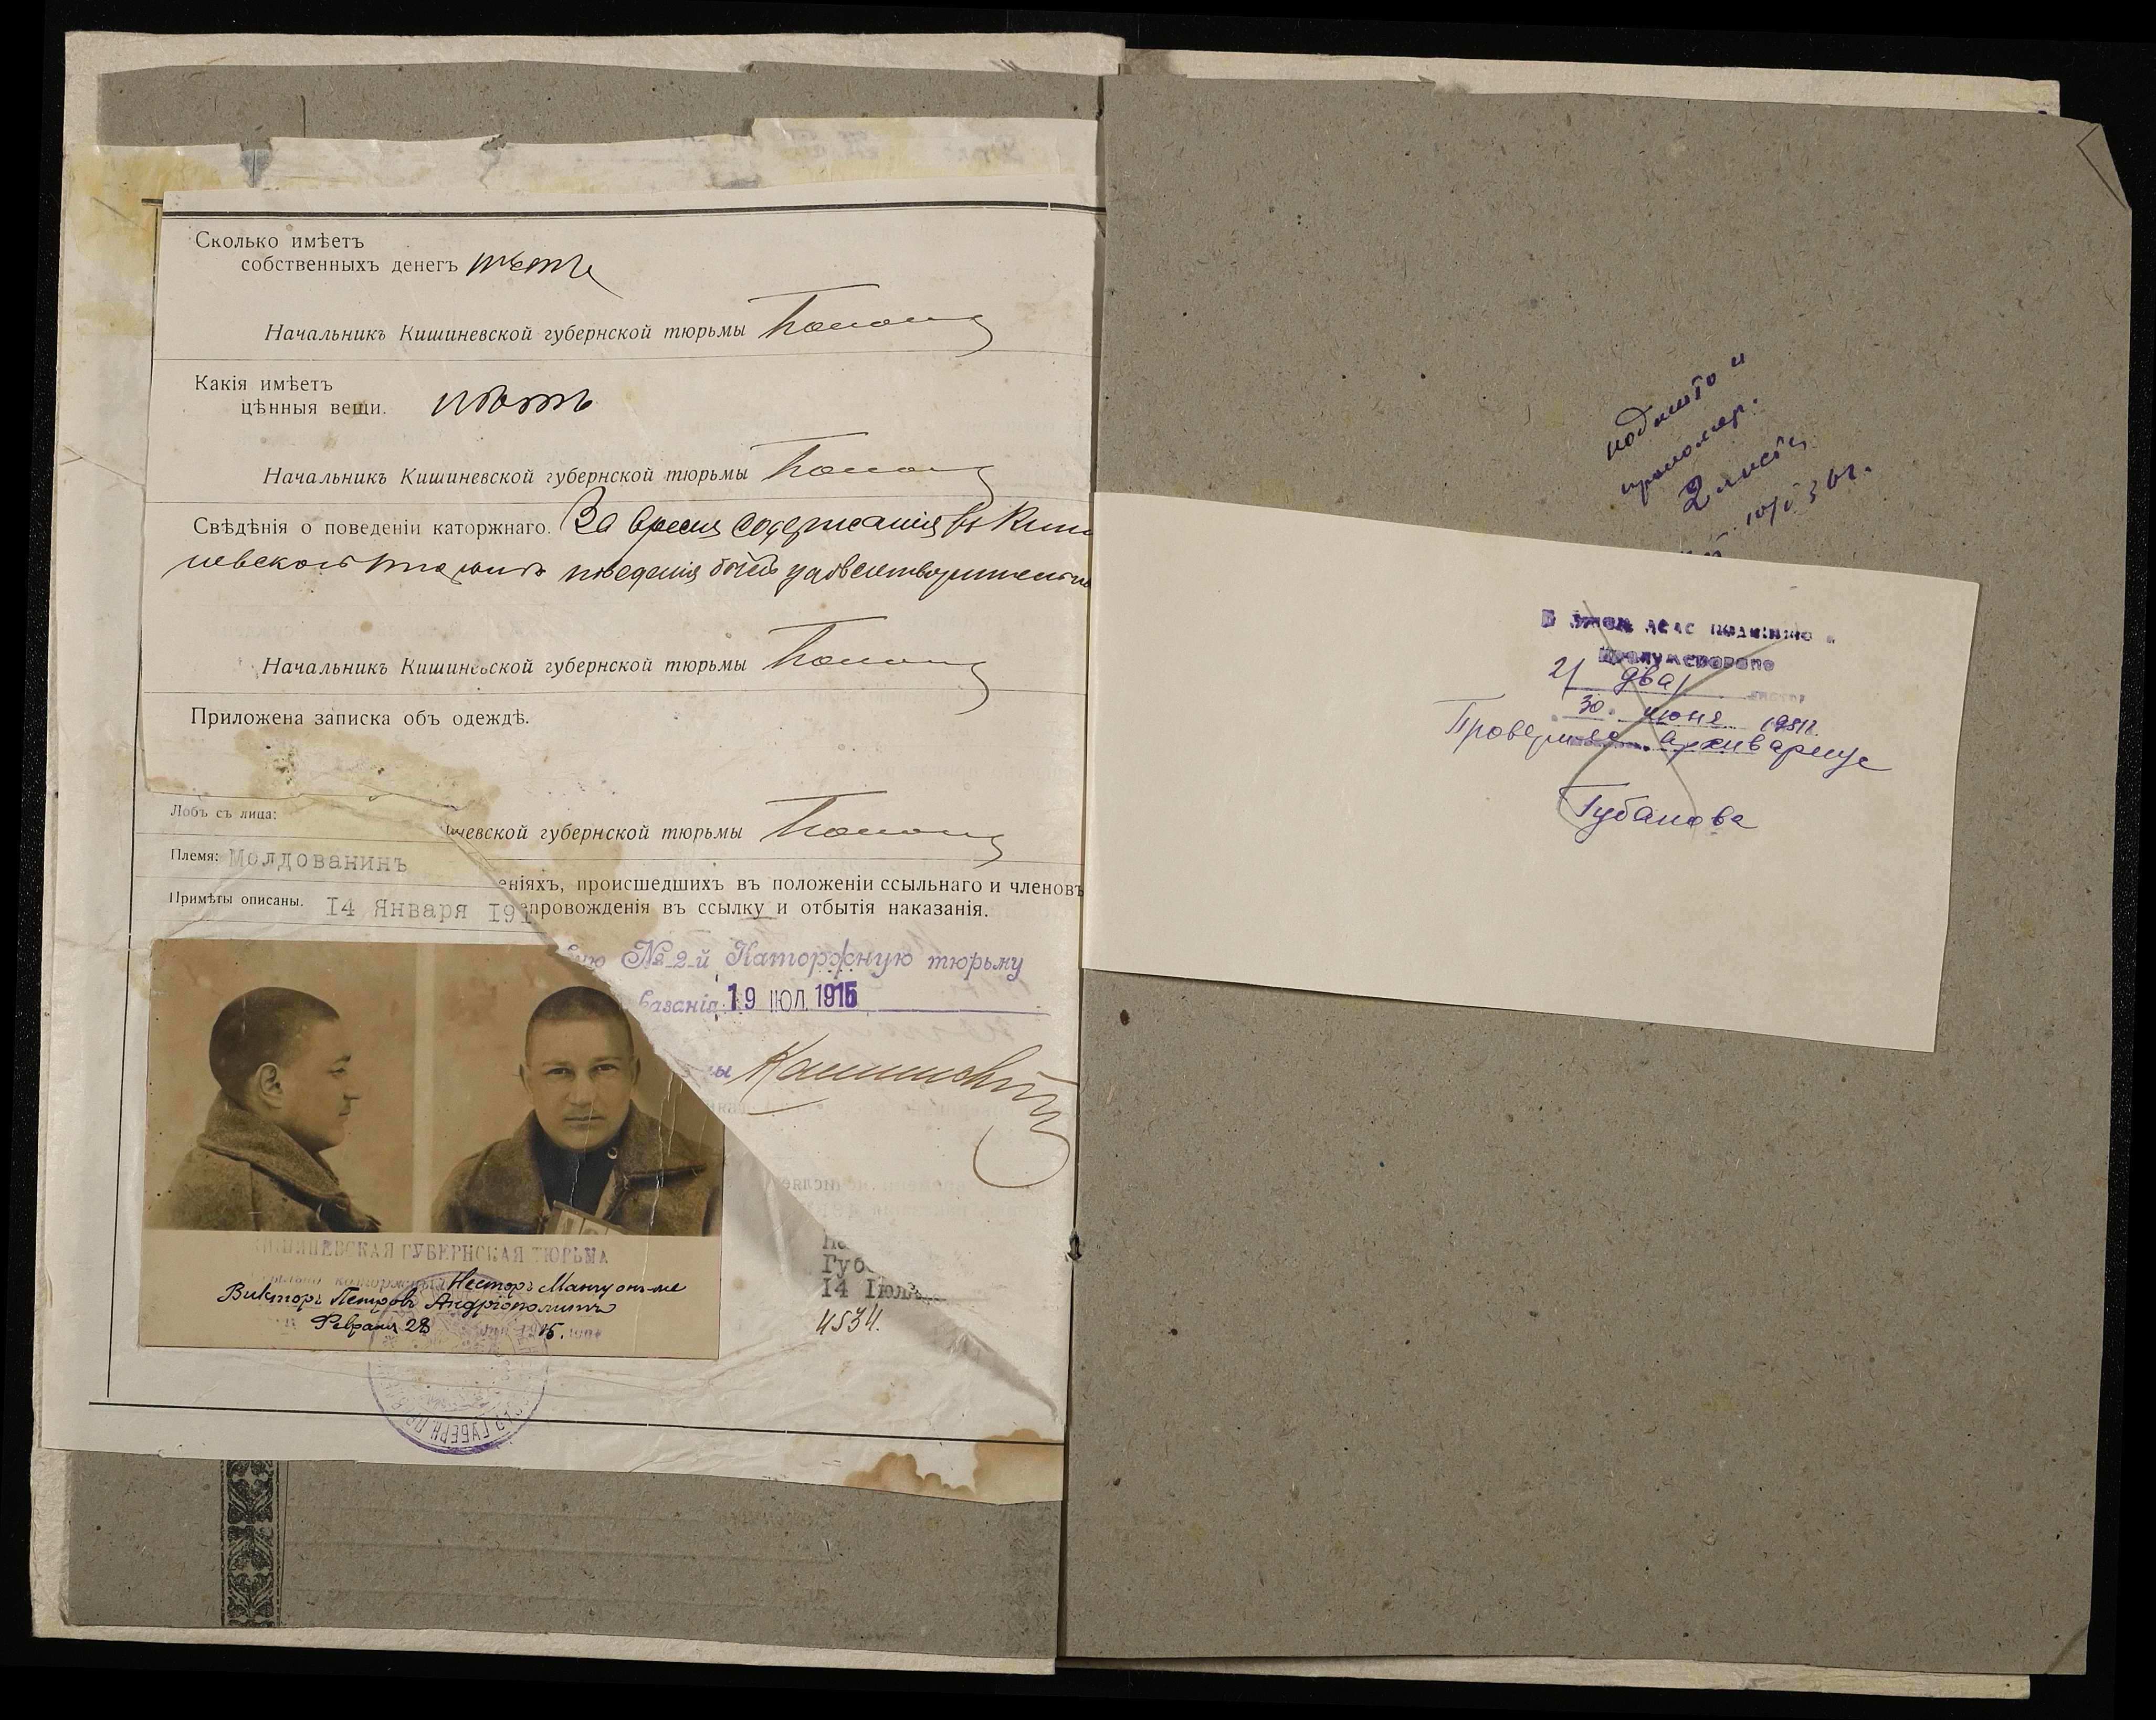 Сколько имѣетъ
собственныхъ денегъ нѣтъ
Начальникъ Кишиневской губернской тюрьмы
Какія имѣетъ
цѣнныя вещи. нѣтъ
Начальникъ Кишиневской губернской тюрьмы
Свѣдѣнія о поведеніи каторжнаго. За время содержанія въ Киши
невской тюрьмѣ поведенія былъ удовлетворительна
Начальникъ Кишиневской губернской тюрьмы
Приложена записка объ одеждѣ.
Лобъ съ лица:
невской губернской тюрьмы
Племя: Молдованинъ
еніяхъ, происшедшихъ въ положеніи ссыльнаго и членовъ
Примѣты описаны. 14 Января 191
епровожденія въ ссылку и отбытія наказанія.
№ 2-й Каторжную тюрьму
казанія 19 ІЮЛ. 1915
КИШИНЕВСКАЯ ГУБЕРНСКАЯ ТЮРЬМА
Несторъ Манчу онъ-же
Викторъ Петровъ Андріополитъ
Февраля 28 15.
Губ
14 Іюля
4534.
подшито и
пронумер.
2 листа
В этом деле подшито и
Пронумеровано
2/ два/ листа
30. июня 1951г.
Проверила архивариус
Губанова